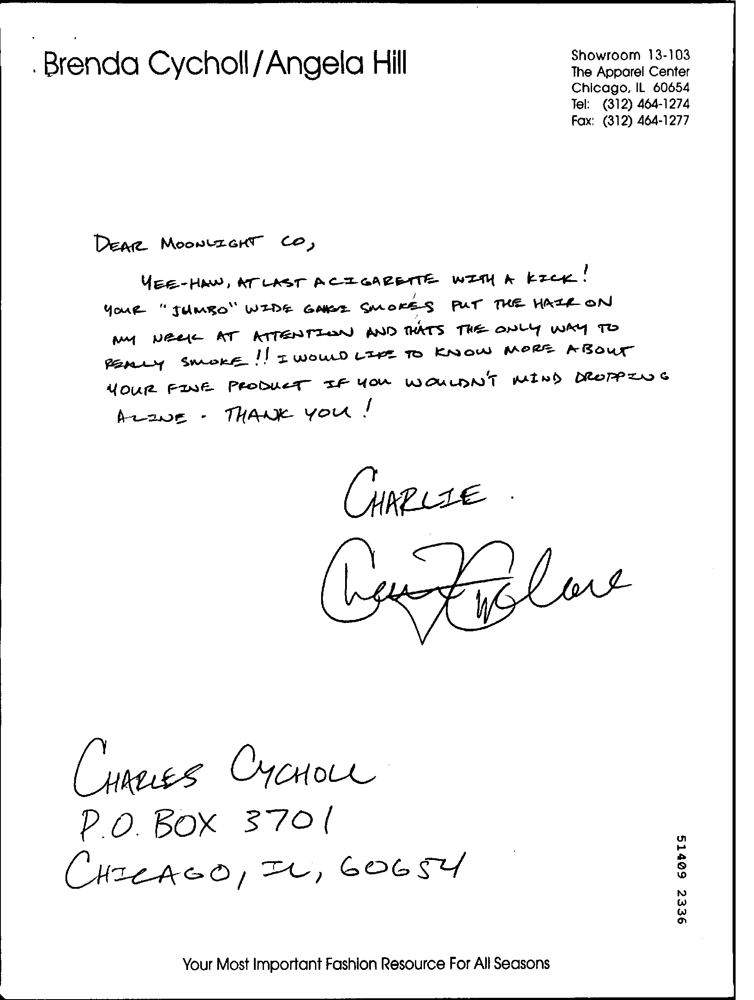 Brenda Cycholl/Angela Hill
Showroom 13-103
The Apparel Center
Chicago, IL 60654
Tel: (312) 464-1274
Fax: (312) 464-1277
DEAR MOONLIGHT CO,
YEE-HAW, AT LAST A CIGARETTE WITH A KICK!
YOUR "JUMBO" WIDE GAGE SMOKES PUT THE HAIR ON
MY NECK AT ATTENTION AND THATS THE ONLY WAY TO
REALLY SMOKE!! I WOULD LIKE TO KNOW MORE ABOUT
YOUR FINE PRODUCT IF YOU WOULDN'T MIND DROPPING
A LINE - THANK YOU!
CHARLIE
CHARLES CYCHOLL
P.O. BOX 3701
CHICAGO, IL, 60654
51409 2336
Your Most Important Fashion Resource For All Seasons